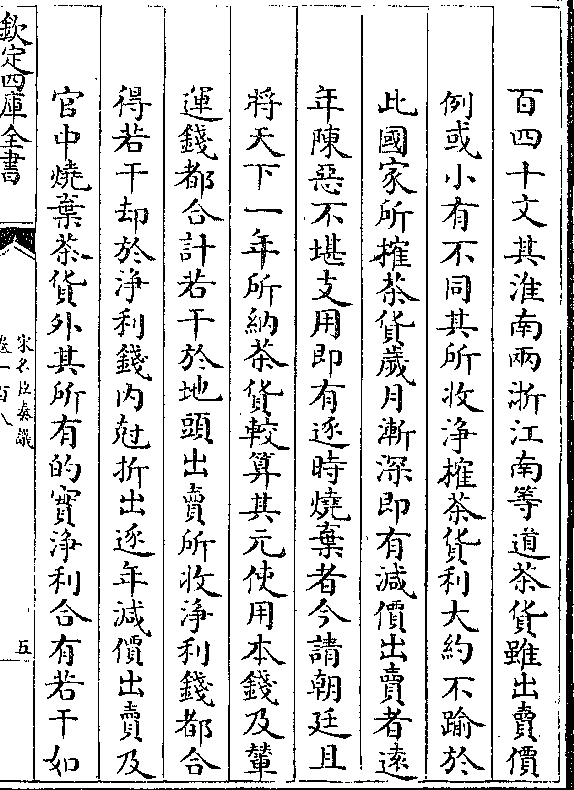 百四十文其淮南兩浙江南等道茶貨雖出賣價
例或小有不同其所收浄榷茶貨利大約不踰於
此國家所榷茶貨歲月漸深即有減價出賣者遠
年陳惡不堪支用即有逐時燒棄者今請朝廷且
將天下一年所納茶貨較算其元使用本錢及輦
運錢都合計若干於地頭出賣所收浄利錢都合
得若干却於浄利錢内尅折出逐年減價出賣及
官中燒棄茶貨外其所有的實浄利合有若干如
欽定四庫全書
宋名臣奏議
卷一百八
五